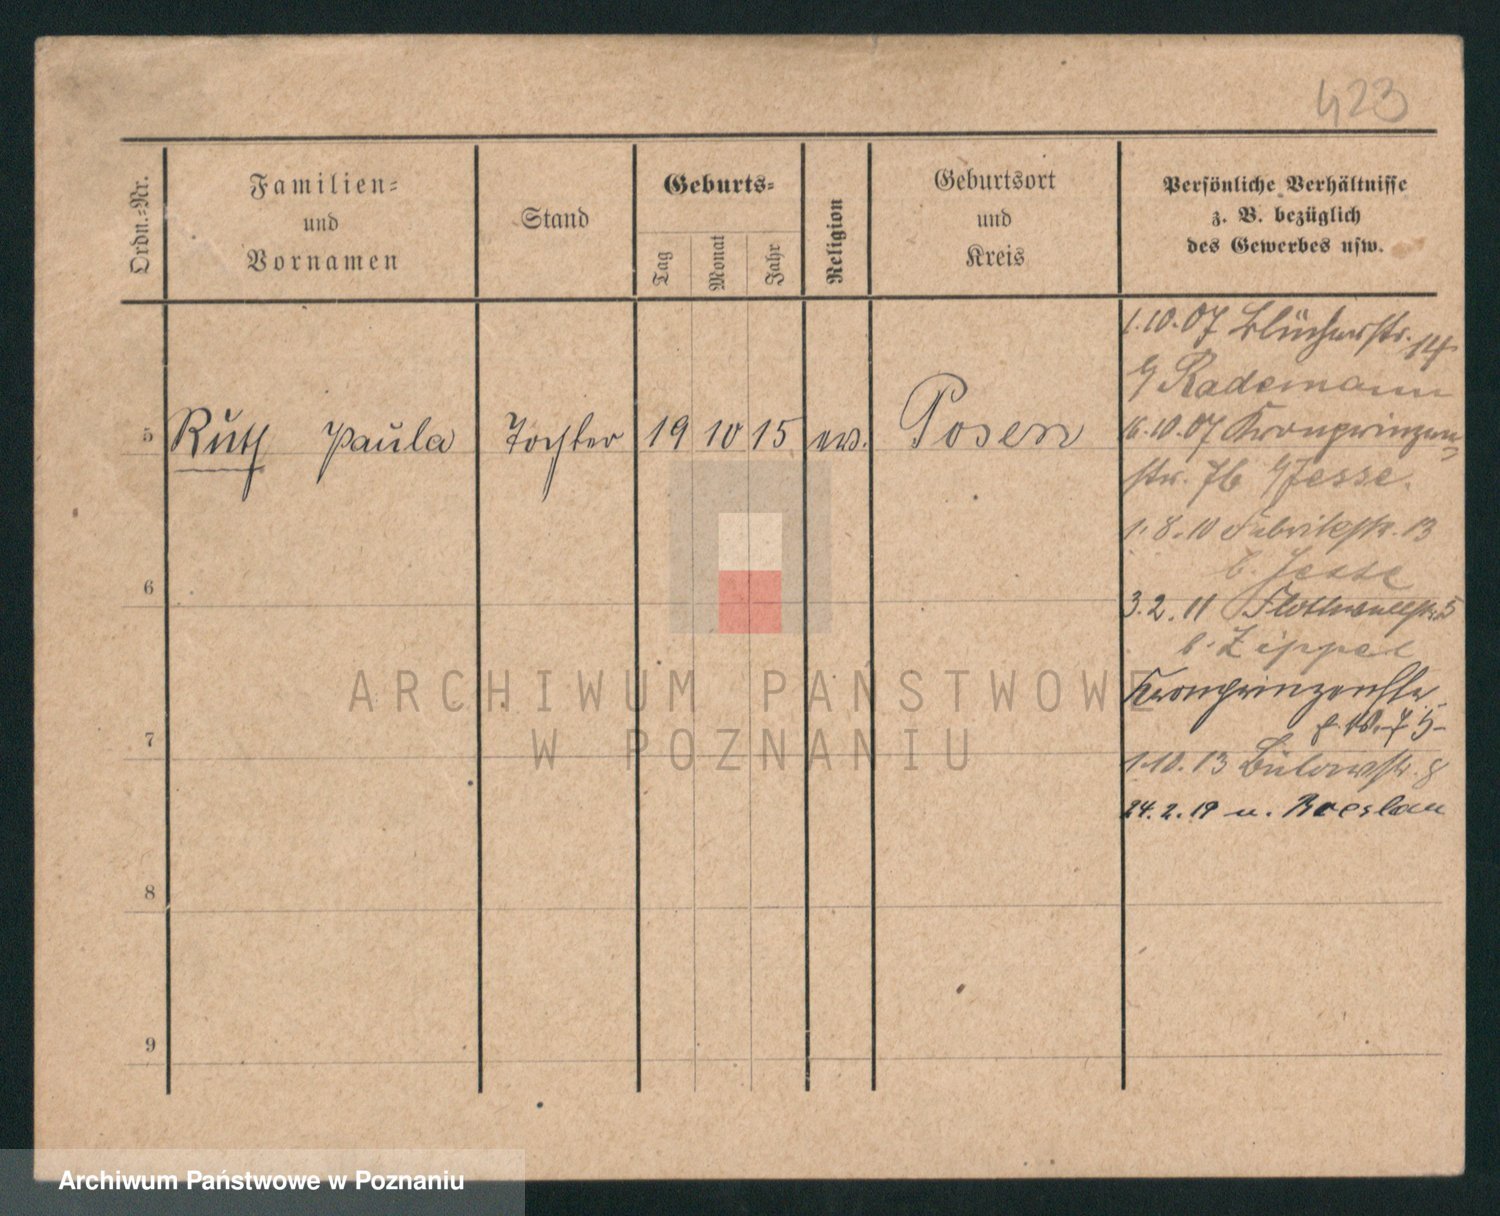 423
Ordn.-Nr.
Familien-
und
Vornamen
Stand
Geburts-
Tag
Monat
Jahr
Religion
Geburtsort
und
Kreis
Persönliche Verhältnisse
z. B. bezüglich
des Gewerbes usw.
1.10.07 Blücherstr. 14
b/ Rademann
5 Ruth Paula Tochter 19 10 15 ev. Posen
16.10.07 Kronprinzen
str. 76 b/ Jesse.
1.8.10 Fabrikstr. 13
b. Jesse
6
3.2.11 Flottwellstr. 5
b. Zippel
Kronprinzenstr.
7
1.10.13 Bülowstr. 8
24.2.19 n. Breslau
8
9
ARCHIWUM PAŃSTWOWE
W POZNANIU
Archiwum Państwowe w Poznaniu